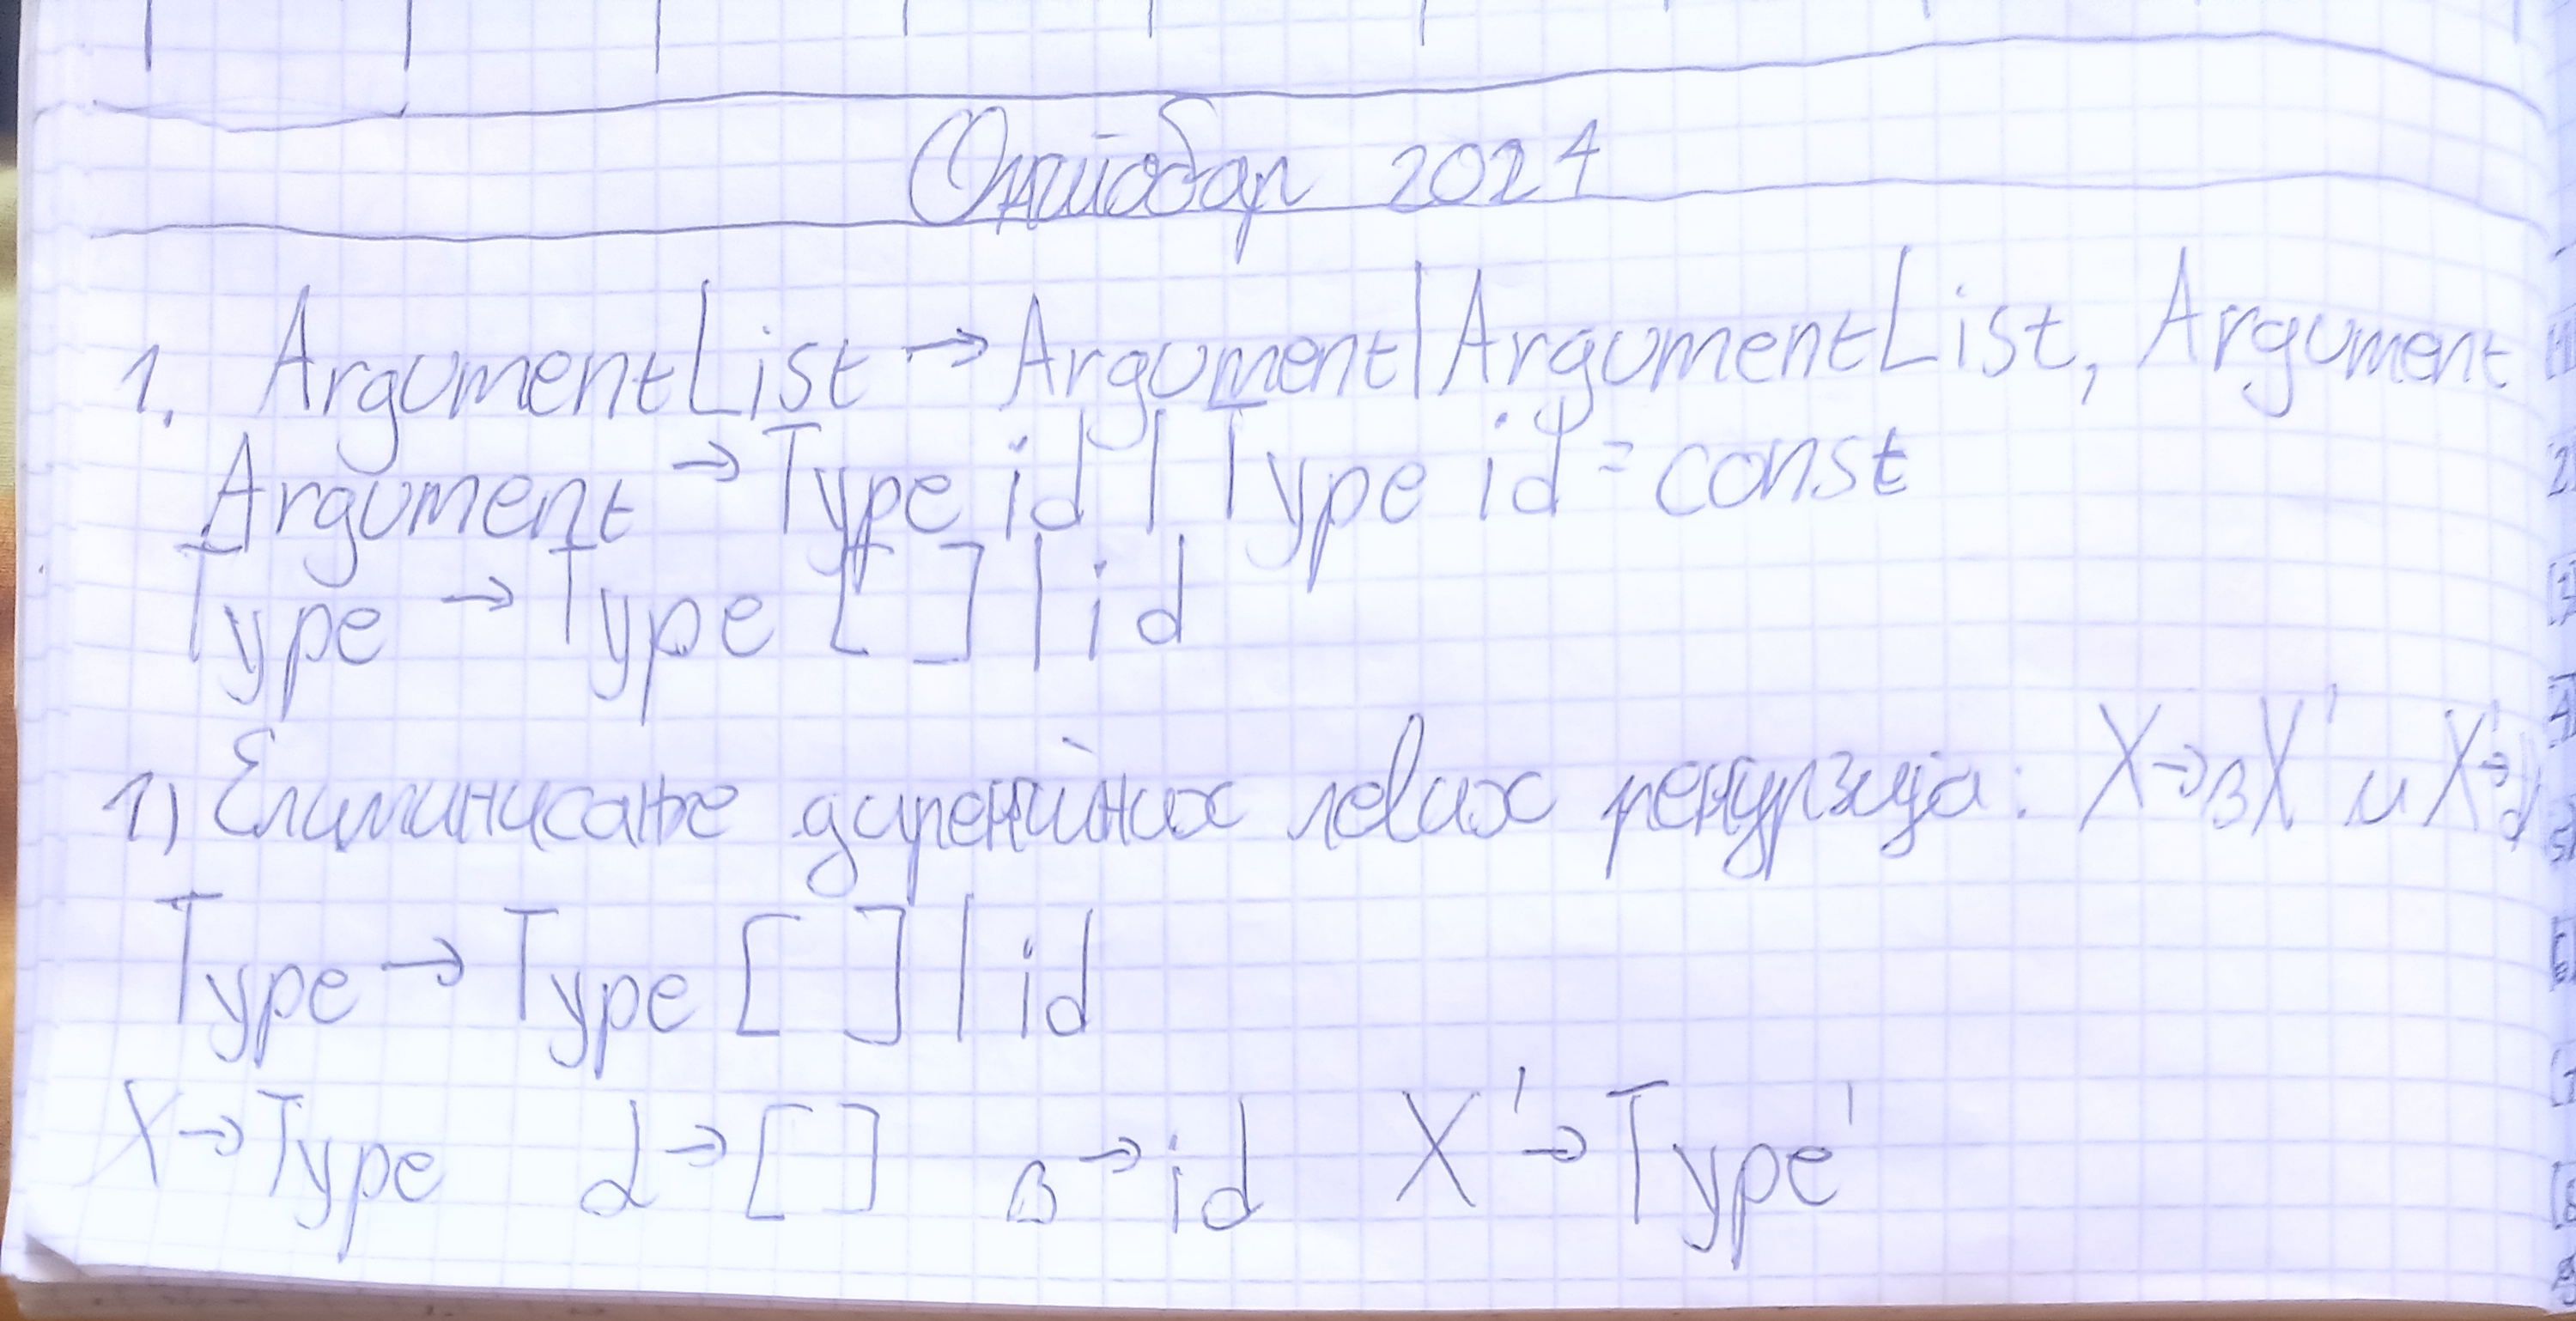 Октобар 2021
1. ArgumentList → Argument | ArgumentList, Argument
Argument → Type id | Type id = const
Type → Type [ ] | id
1) Елиминисање директних левих рекурзија: X → βX' и X' → α
Type → Type [ ] | id
X → Type α → [ ] β → id X' → Type'